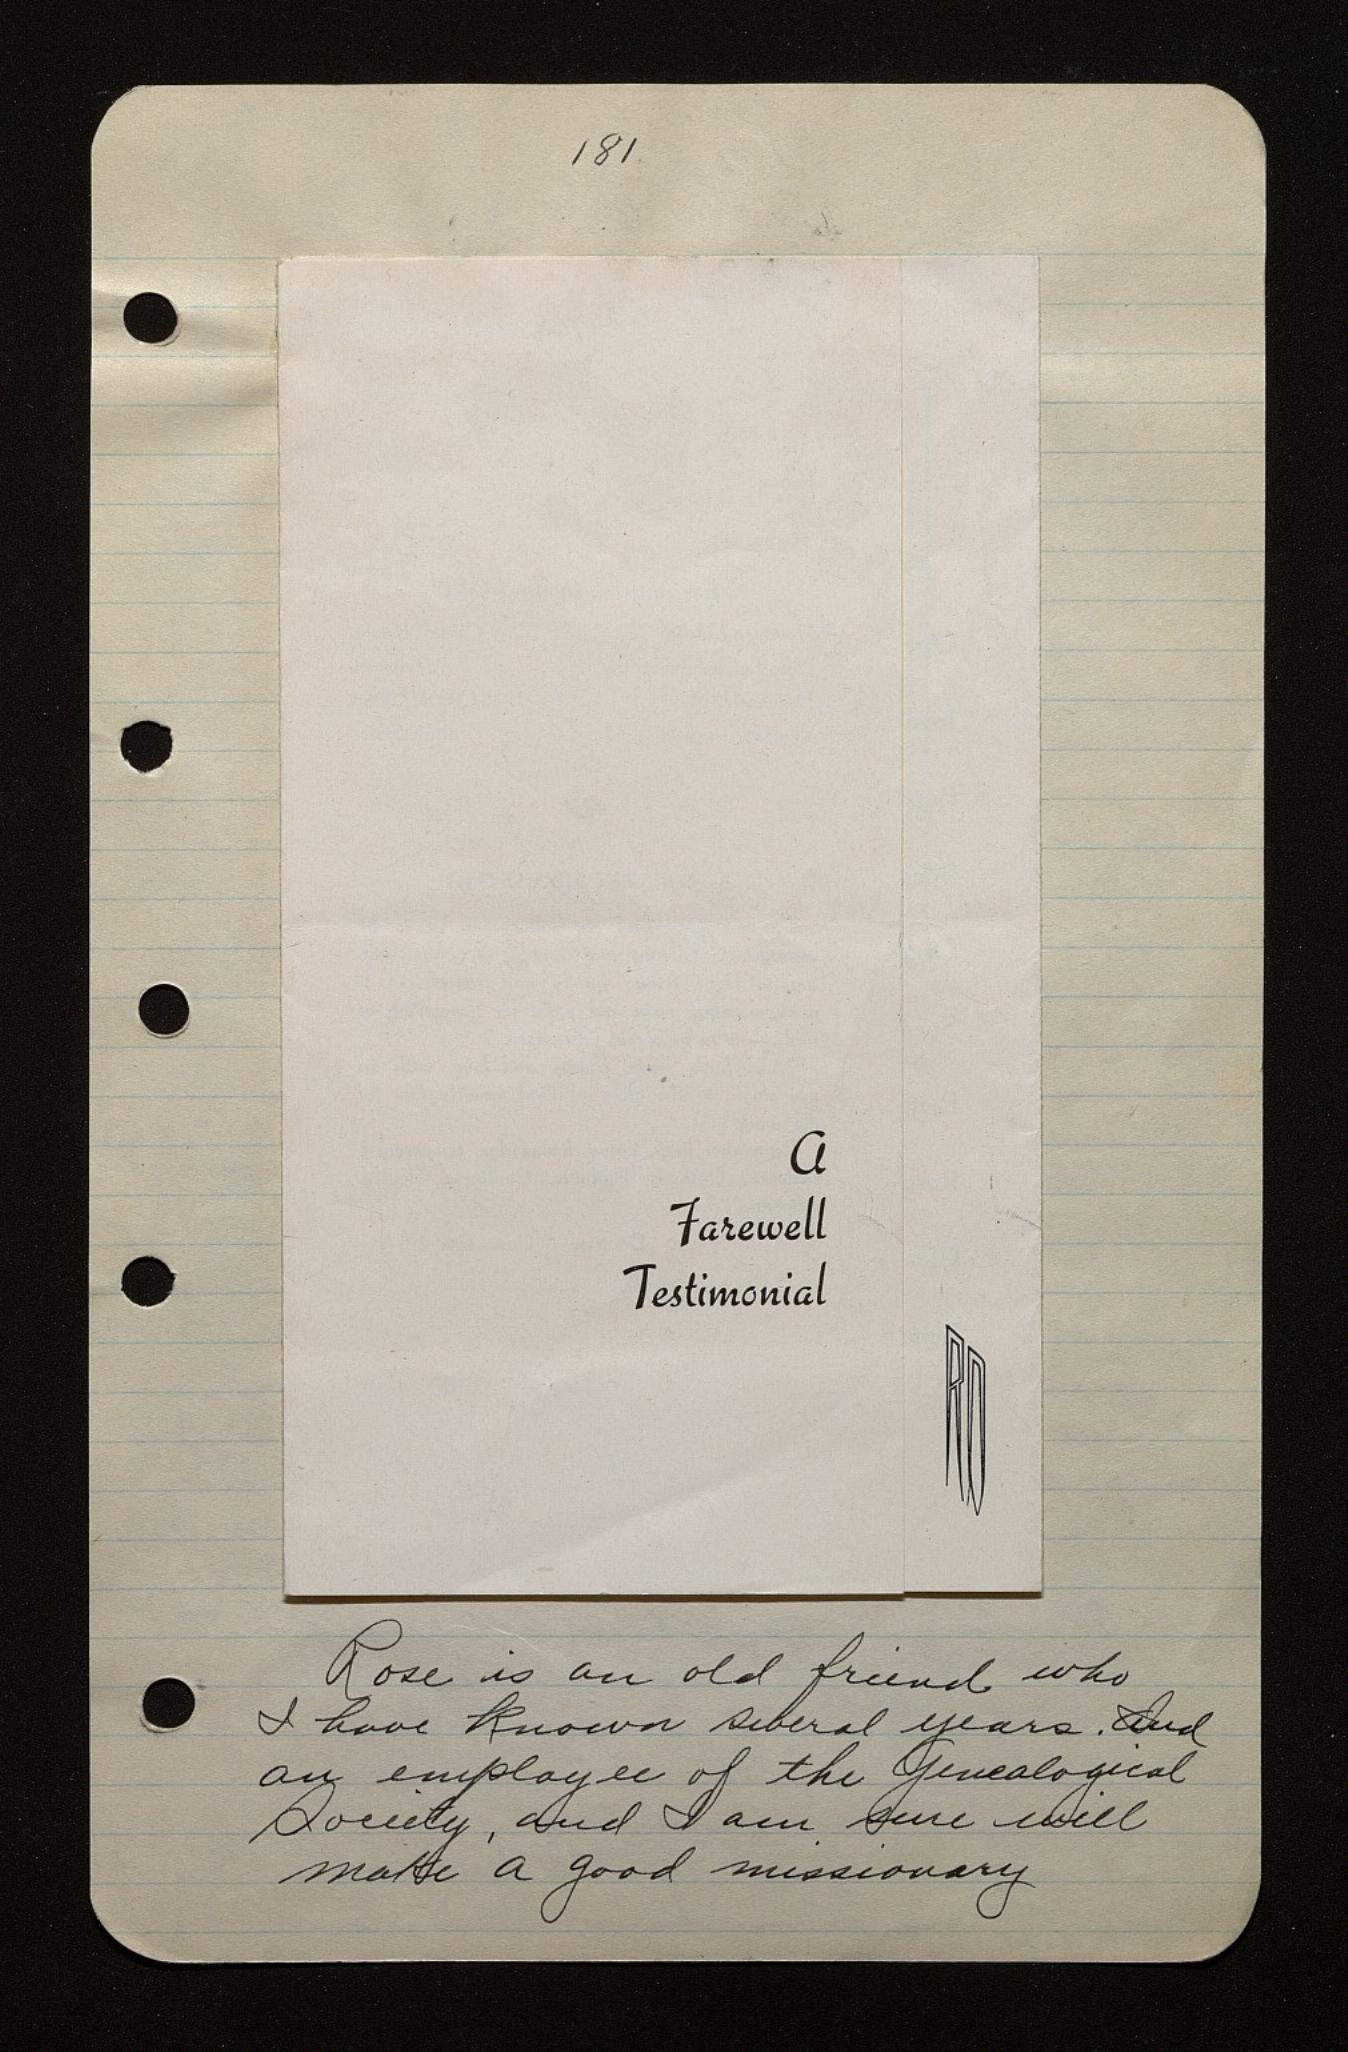 181
A
Farewell
Testimonial
RD
Rose is an old friend who
I have known several years. And
an employee of the Genealogical
Society, and I am sure will
make a good missionary